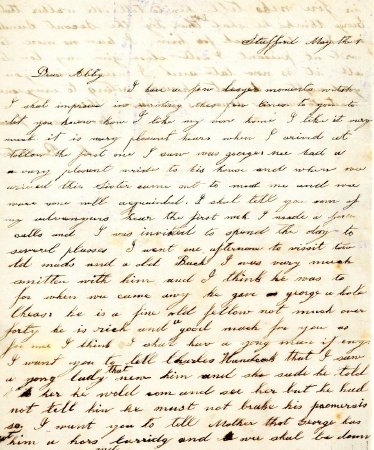 Stafford May the 1
Dear Abby
I have a few lasure moments witch
I shal improve in writing thes few lines to you to
let you know how I like my new home I like it very
much it is very plesent hear when I arived at
tollon the first one I saw was george we had a
a very plesent wride to his house and when we
arived thir Sister came out to meet me and we
ware soon well aquainted I shal tell you som of
my advanurs hear the first wek I made a few
calls and I was invited to spend the day to
several plases I went one afternoon to vissit two
old mads and a old Bach I was very much
smitten with him and I think he was to
for when we came awy he gave george a hole
Cheas he is a fine old fellow not much over
forty he is rich and a good mach for you as
for me I think I shal hav a yong man if eney
I want you to tell Charles Handcok that I saw
a yong lady that new him and she sade he told
her he wold com and see her but he had
not tell him he must not brake his promersis
so I want you to tell Mother that George has
him a hors Carridg and we shal be down